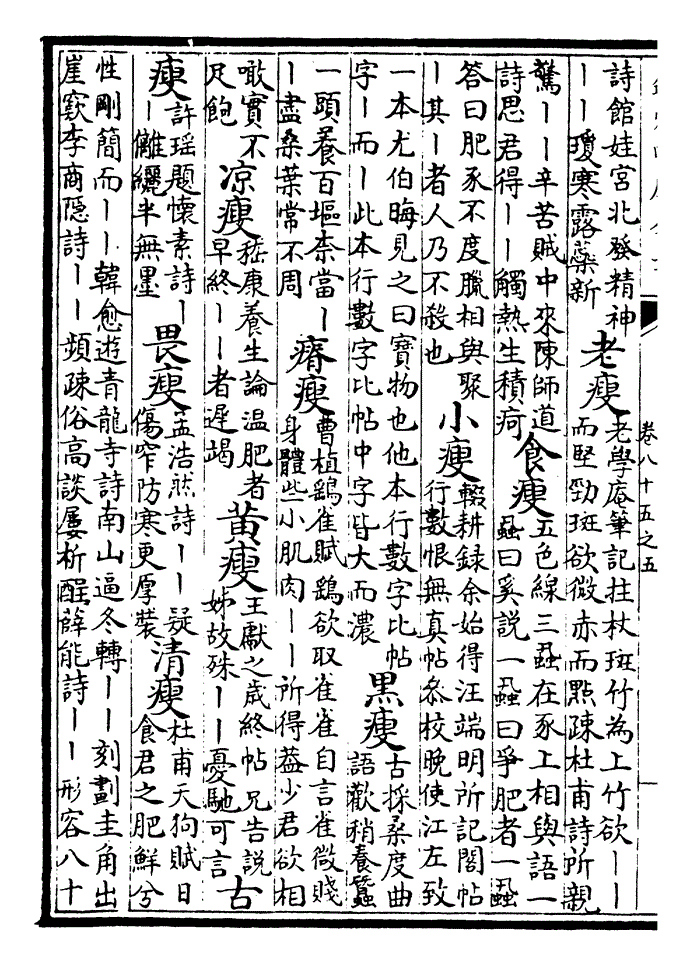 詩館娃宮北發精神
——瓊寒露蘂新
老瘦
老學庵筆記拄杖斑竹為上竹欲——
而堅勁斑欲微赤而點疎杜甫詩所親
驚——辛苦賊中來陳師道
詩思君得——觸熱生積痾
食瘦
五色線三蝨在豕上相與語一
蝨曰奚說一蝨曰爭肥者一蝨
答曰肥豕不度臘相與聚
—其—者人乃不殺也
小瘦
輟耕録余始得汪端明所記閣帖
行數恨無真帖叅校晚使江左致
一本尤伯晦見之曰寶物也他本行數字比帖
字—而—此本行數字比帖中字皆大而濃
黒瘦
古採桑度曲
語歡稍養蠶
一頭養百塸柰當—
—盡桑葉常不周
瘠瘦
曹植鷂雀賦鷂欲取雀雀自言雀微賤
身體些小肌肉——所得葢少君欲相
噉實不
足飽
凉瘦
嵇康養生論温肥者
早終——者遲竭
黄瘦
王獻之歲終帖兄告說
姊故殊——憂馳可言
古
瘦
許瑶題懐素詩—
—儺纚半無墨
畏瘦
孟浩然詩——疑
傷窄防寒更厚裝
清瘦
杜甫天狗賦日
食君之肥鮮兮
性剛簡而——韓愈遊青龍寺詩南山逼冬轉——刻劃圭角出
崖窾李商隱詩——頻疎俗高談屢析酲薛能詩——形容八十
卷八十五之五